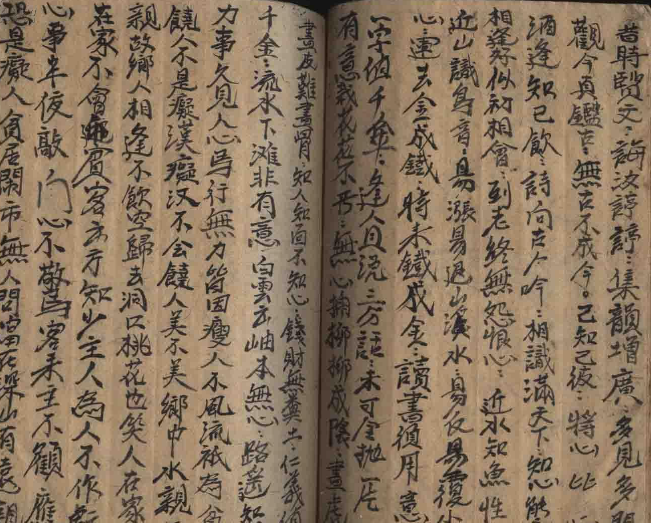 昔時賢文：誨汝諄諄：集韻增廣：多見多聞
觀今宜鑑古：無古不成今：己知己彼：將心比
酒逢知己飲：詩向古人吟：相識滿天下：知心能
相逢好似初相會：到老終無怨恨心：近水知魚性
近山識鳥音：易漲易退山溪水：易反易覆小
心：運去金成鐵：時來鐵成金：讀書須用意
一字值千金：逢人且說三分話：未可全拋一片
有意栽花花不秀：無心插柳柳成陰：畫虎
畫皮難畫骨：知人知面不知心：錢財如糞土仁義值
千金：流水下灘非有意白雲出岫本無心路遙知
力事久見人心馬行無力皆因瘦人不風流祇為貧
饒人不是癡漢癡汉不会饒人美不美鄉中水親
親故鄉人相逢不飲空歸去洞口桃花也笑人在家
在家不會迎賓客出方知少主人為人不作虧
心事半夜敲門心不驚客來主不顧應
恐是癡人貧居鬧市無人問富在深山有遠親